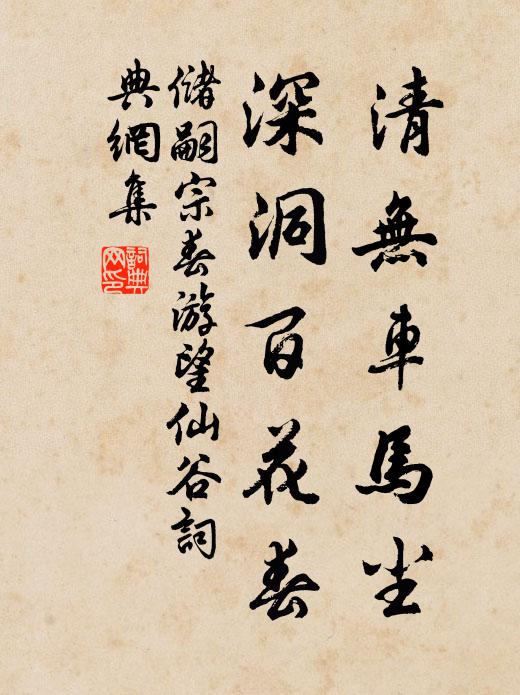 清無車馬尘
深洞百花春
儲嗣宗春游望仙谷詞
典網集
詞典
网印